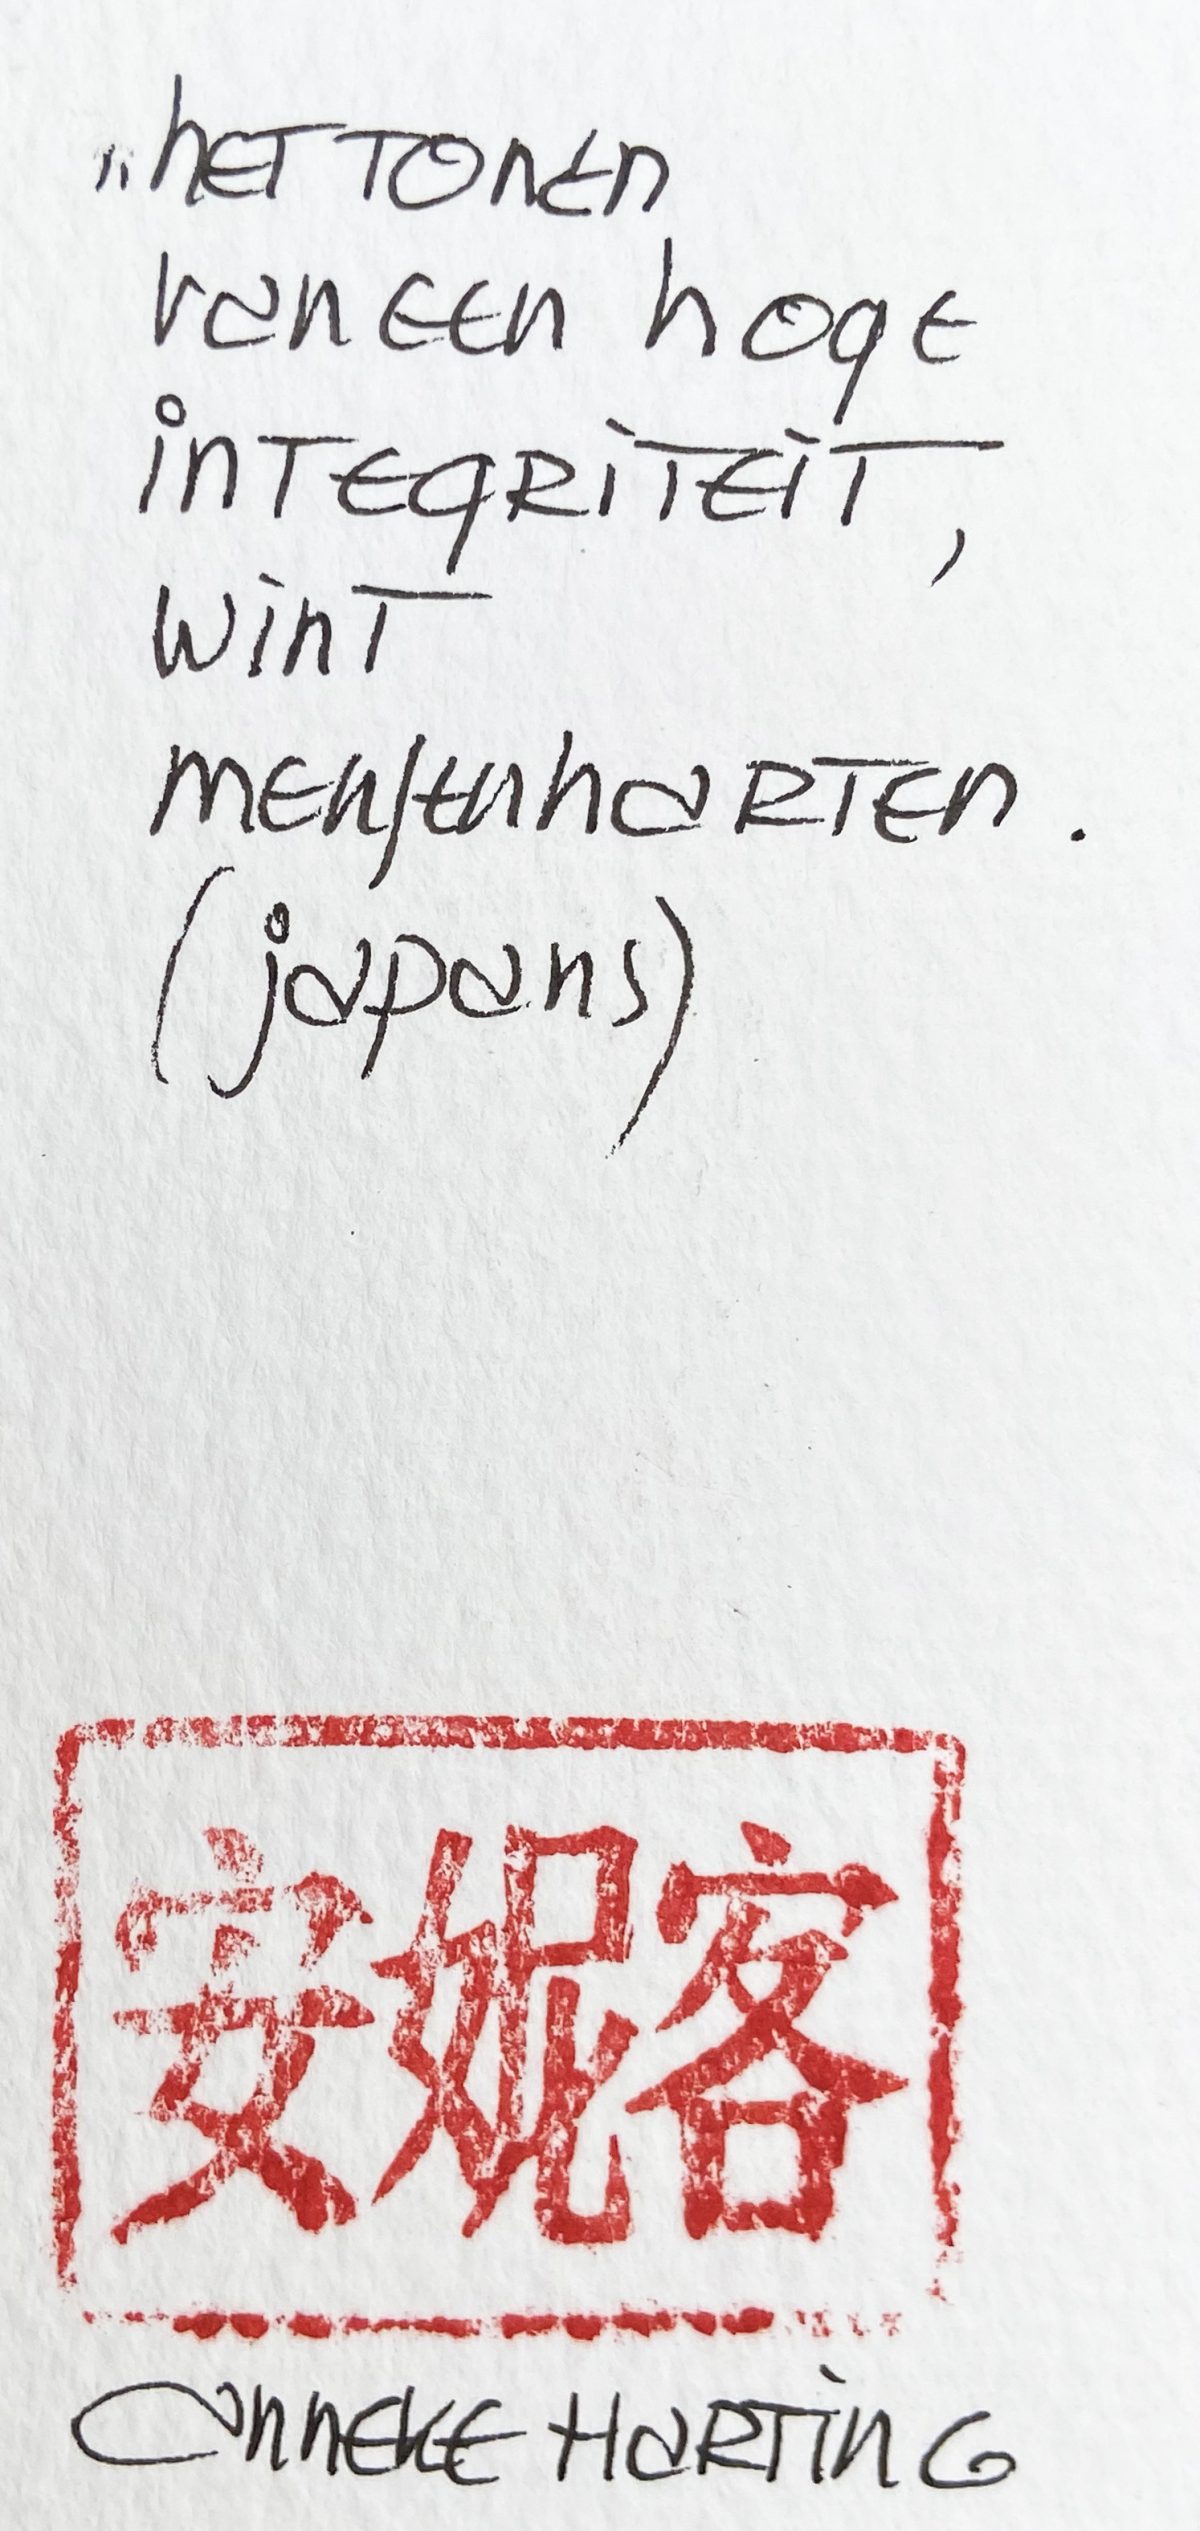 „het tonen
van een hoge
integriteit,
wint
mensenharten.
(japans)
安妮客
Anneke Harting